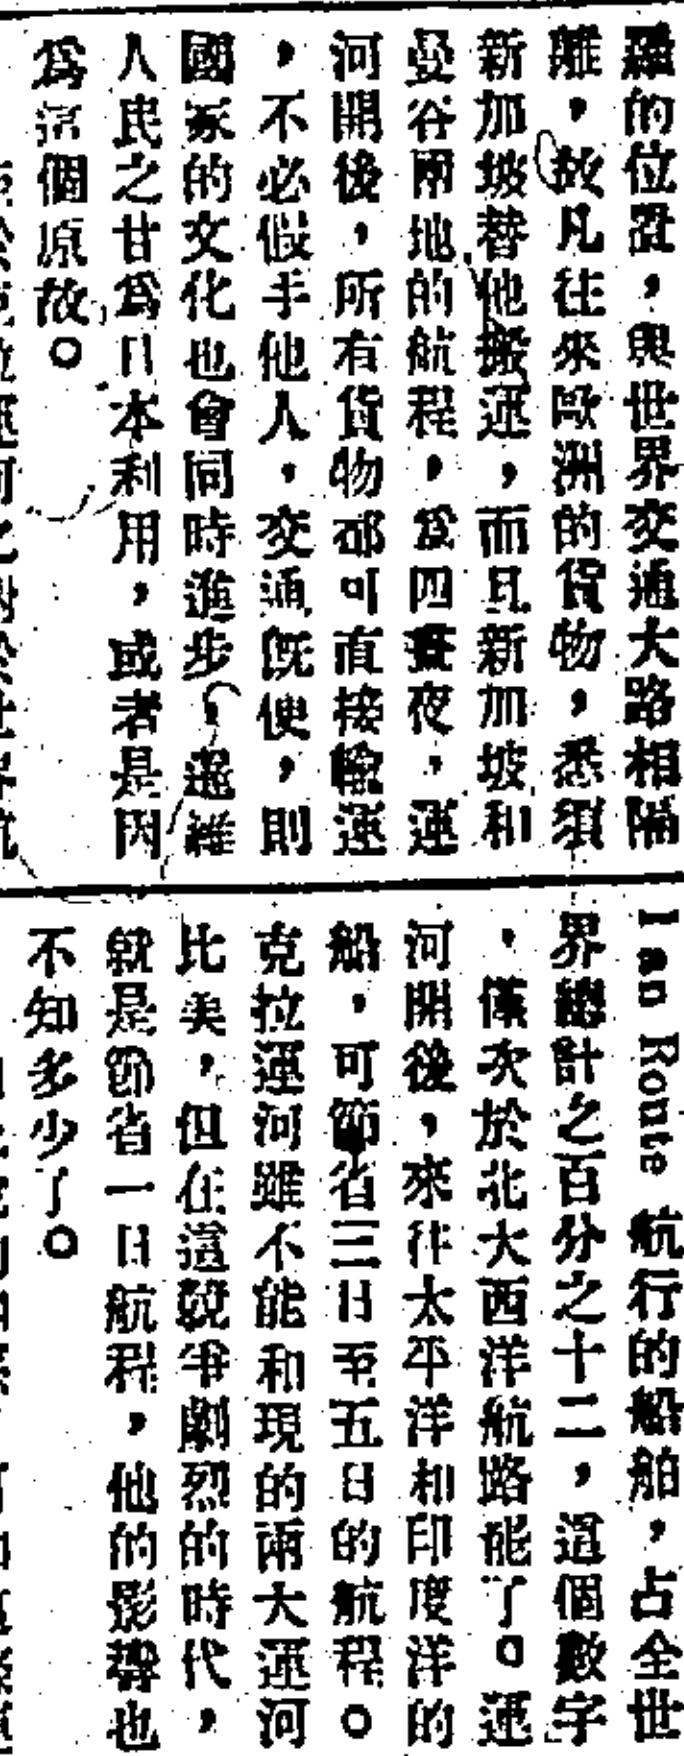 羅的位置，與世界交通大路相隔
離，故凡往來歐洲的貨物，悉須
新加坡替他搬運，而且新加坡和
曼谷兩地的航程，爲四晝夜，運
河開後，所有貨物都可直接輸運
，不必假手他人，交通旣便，則
國家的文化也會同時進步，暹羅
人民之甘爲日本利用，或者是因
爲這個原故。
Ian Ronte 航行的船舶，占全世
界總計之百分之十二，這個數字
，僅次於北大西洋航路能了。運
河開後，來往太平洋和印度洋的
船，可節省三日至五日的航程。
克拉運河雖不能和現的兩大運河
比美，但在這競爭劇烈的時代，
就是節省一日航程，他的影響也
不知多少了。